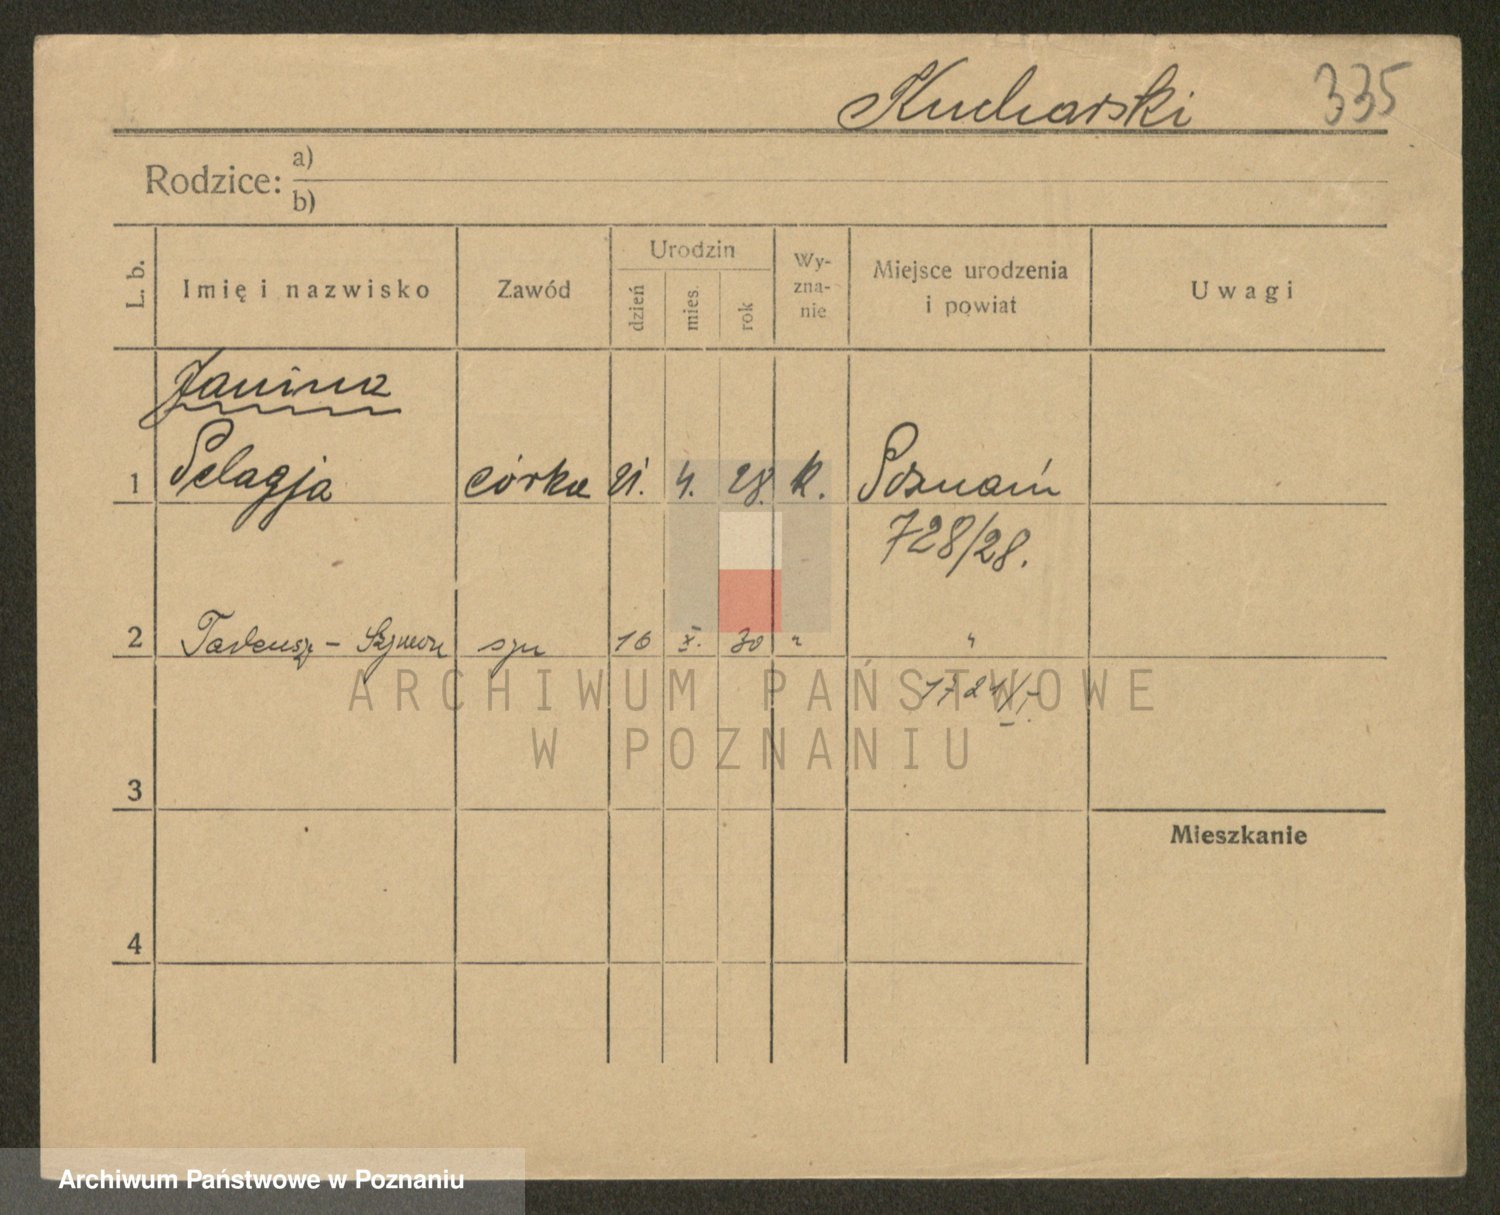 Kucharski 335
Rodzice: a)
b)
L. b. Imię i nazwisko Zawód Urodzin dzień mies. rok Wy-zna-nie Miejsce urodzenia i powiat Uwagi
Janina
1 Pelagja córka 21. 4. 28. k. Poznań
728/28.
2 Tadeusz - Szymon syn 16 X. 30 " "
ARCHIWUM PAŃSTWOWE
W POZNANIU
3
Mieszkanie
4
Archiwum Państwowe w Poznaniu